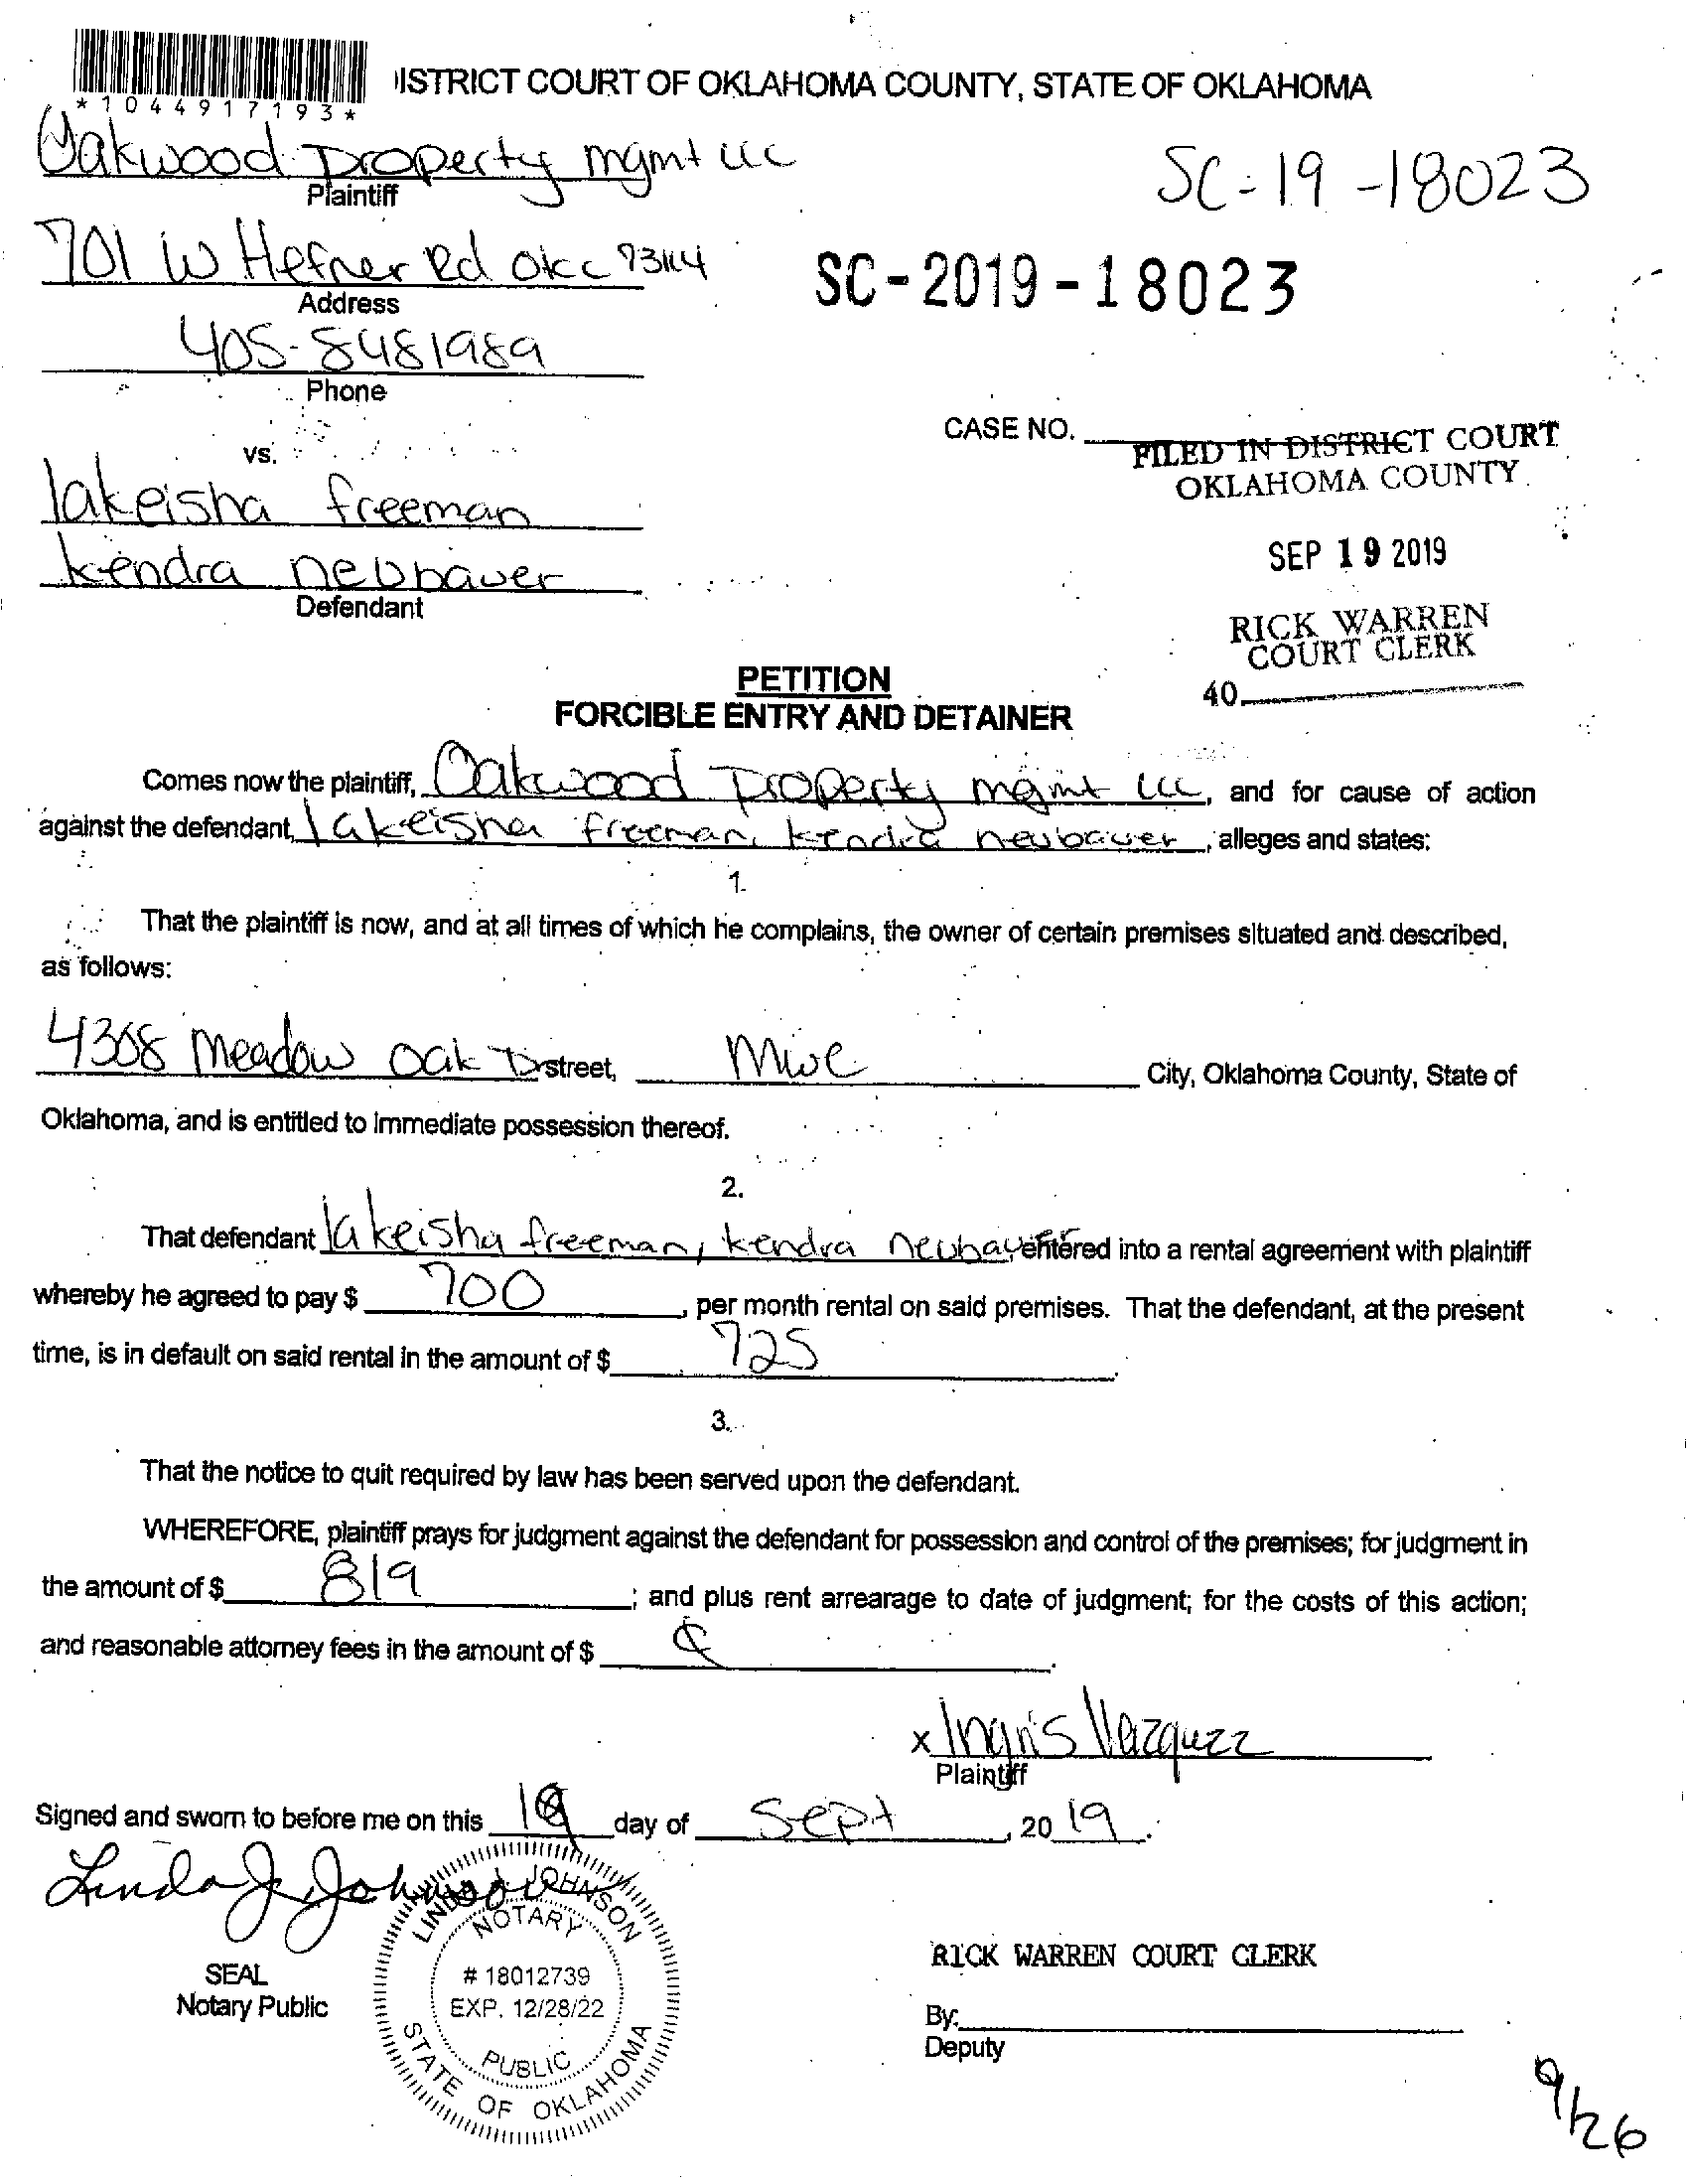 *1044917193*
ISTRICT COURT OF OKLAHOMA COUNTY, STATE OF OKLAHOMA
Oakwood Property mgmt LLC
Plaintiff
SC-19-18023
701 W Hefner Rd OKC 73114
Address
SC-2019-18023
405-8481989
Phone
CASE NO.
FILED IN DISTRICT COURT
OKLAHOMA COUNTY
vs.
lakeisha freeman
SEP 19 2019
kendra neubauer
Defendant
RICK WARREN
COURT CLERK
40
PETITION
FORCIBLE ENTRY AND DETAINER
Comes now the plaintiff, Oakwood Property mgmt LLC, and for cause of action
against the defendant, lakeisha freeman, kendra neubauer, alleges and states:
1.
That the plaintiff is now, and at all times of which he complains, the owner of certain premises situated and described,
as follows:
4308 Meadow Oak Dr street, MWC City, Oklahoma County, State of
Oklahoma, and is entitled to immediate possession thereof.
2.
That defendant lakeisha freeman, kendra neubauer entered into a rental agreement with plaintiff
whereby he agreed to pay $ 700, per month rental on said premises. That the defendant, at the present
time, is in default on said rental in the amount of $ 725.
3.
That the notice to quit required by law has been served upon the defendant.
WHEREFORE, plaintiff prays for judgment against the defendant for possession and control of the premises; for judgment in
the amount of $ 819; and plus rent arrearage to date of judgment; for the costs of this action;
and reasonable attorney fees in the amount of $
x Ingris Vazquez
Plaintiff
Signed and sworn to before me on this 19 day of Sept, 2019.
Linda J. Johnson
LINDA J. JOHNSON
NOTARY
# 18012739
EXP. 12/28/22
PUBLIC
STATE OF OKLAHOMA
SEAL
Notary Public
RICK WARREN COURT CLERK
By:
Deputy
9/26